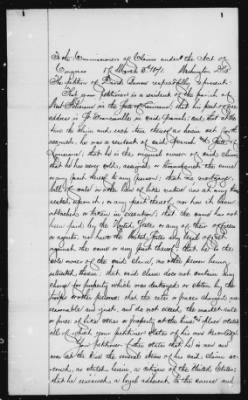 To the Commissioners of Claims under the Act of
Congress of March 3d 1871. Washington D.C.
The petition of David respectfully represents:
That your petitioner is a resident of the parish of
West Feliciana in the State of Louisiana; that his post office
address is St Francisville in said parish; and that at the
time the claim and each item thereof as herein set forth
accrued, he was a resident of said parish & State of
Louisiana; that he is the original owner of said claim;
that he has never sold, assigned or transferred the same
or any part thereof to any person; that no mortgage,
bill of sale or other lien of like nature has at any time
rested upon it, or any part thereof, nor has it been
attached or taken in execution; that the same has not
been paid by the United States or any of their officers
or agents; nor have the United States any legal offset
against the same or any part thereof; that he is the
sole owner of the said claim, no other person being
interested therein; that said claim does not contain any
charge for property which was destroyed or stolen by the
troops or other persons; that the rates or prices charged are
reasonable and just, and do not exceed the market rate
or price of like stores or property at the time & place stated
all of which your petitioner states of his own knowledge
Your petitioner further states that he is now and
was at the time the several items of his said claim accrued,
as stated herein, a citizen of the United States;
that he remained a loyal adherent to the cause and